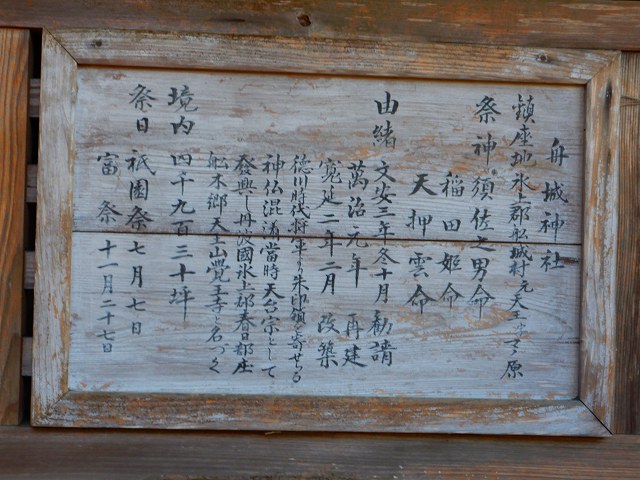 舟城神社
鎮座地 氷上郡舩城村元天王字マヽ原
祭神 須佐之男命
稲田姫命
天押雲命
由緒 文安三年冬十月 勧請
萬治元年 再建
寛延二年二月 改築
徳川時代将軍より朱印領を寄せらる
神仏混淆當時天台宗として
發興し丹波國氷上郡春日部庄
舩木郷 天王山覺王寺と名づく
境内 四千九百三十坪
祭日 祇園祭 七月七日
富祭 十一月二十七日